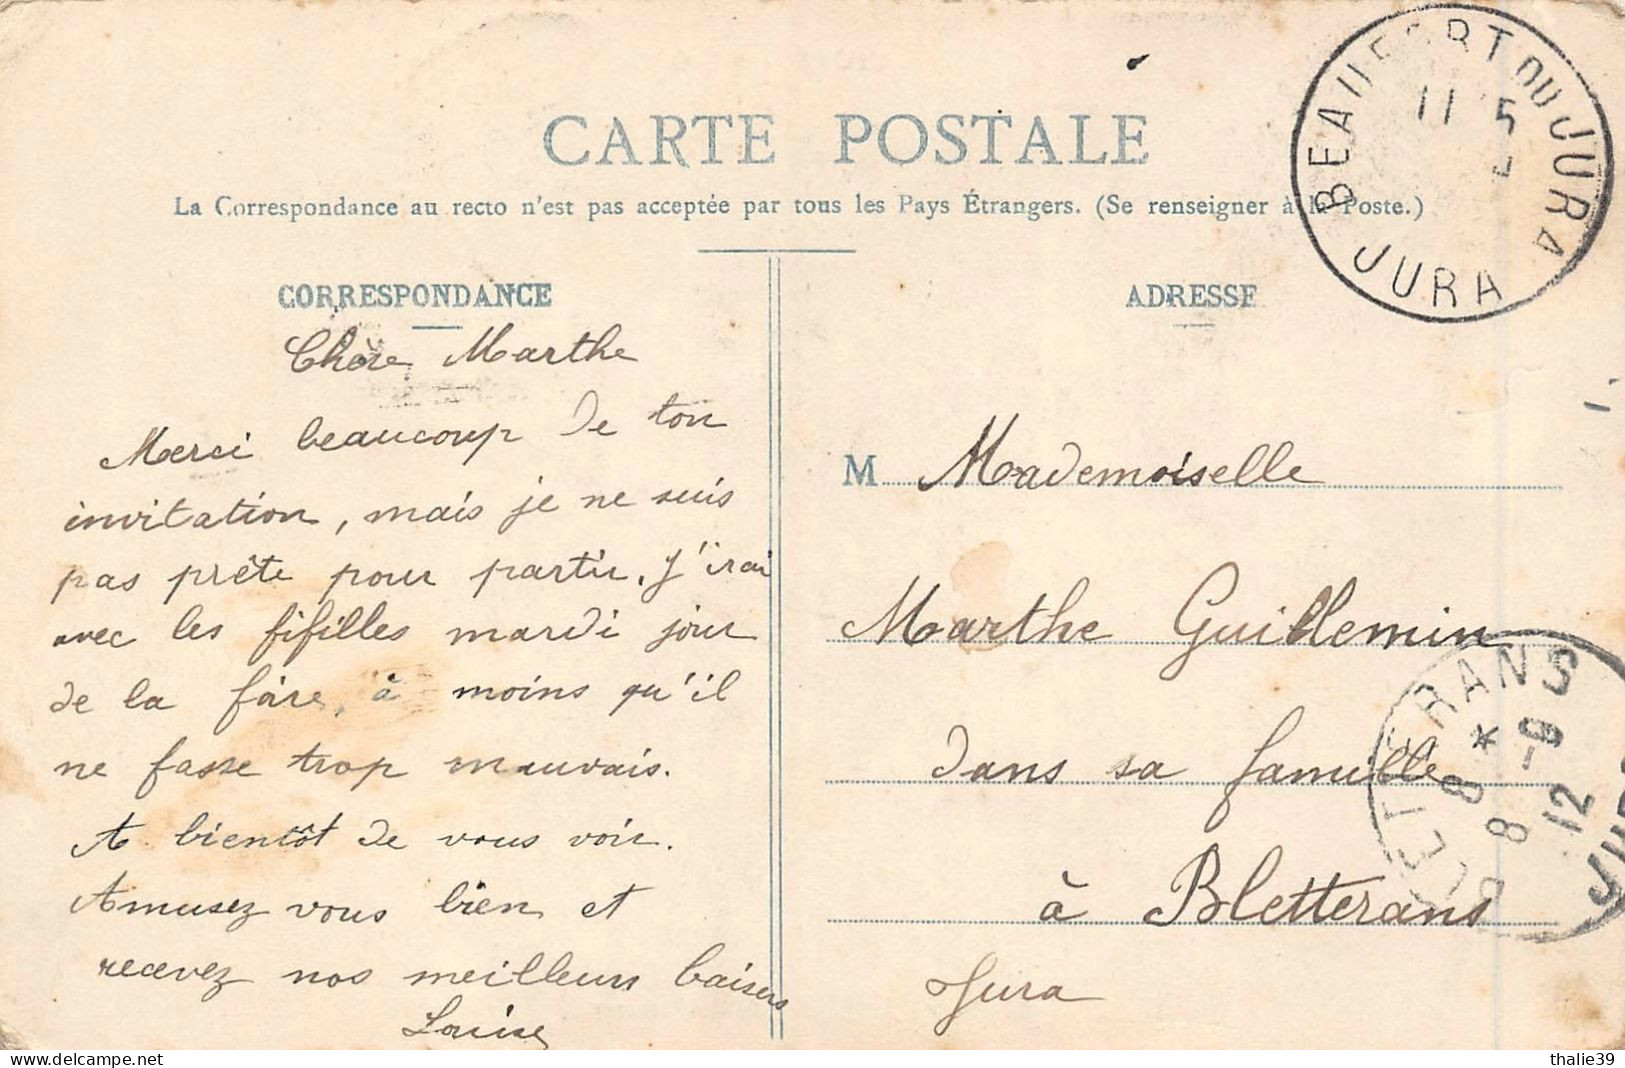 CARTE POSTALE
La Correspondance au recto n'est pas acceptée par tous les Pays Étrangers. (Se renseigner à la Poste.)
CORRESPONDANCE
Chère Marthe
Merci beaucoup de ton
invitation, mais je ne suis
pas prête pour partir. J'irai
avec les fifilles mardi jour
de la foire, à moins qu'il
ne fasse trop mauvais.
A bientôt de vous voir.
Amusez vous bien et
recevez nos meilleurs baisers
Louise
ADRESSE
M Mademoiselle
Marthe Guillemin
dans sa famille
à Bletterans
Jura
BEAUFORT DU JURA
11 5
JURA
BLETTERANS
8 * 8 -9
12
JURA
thalie39